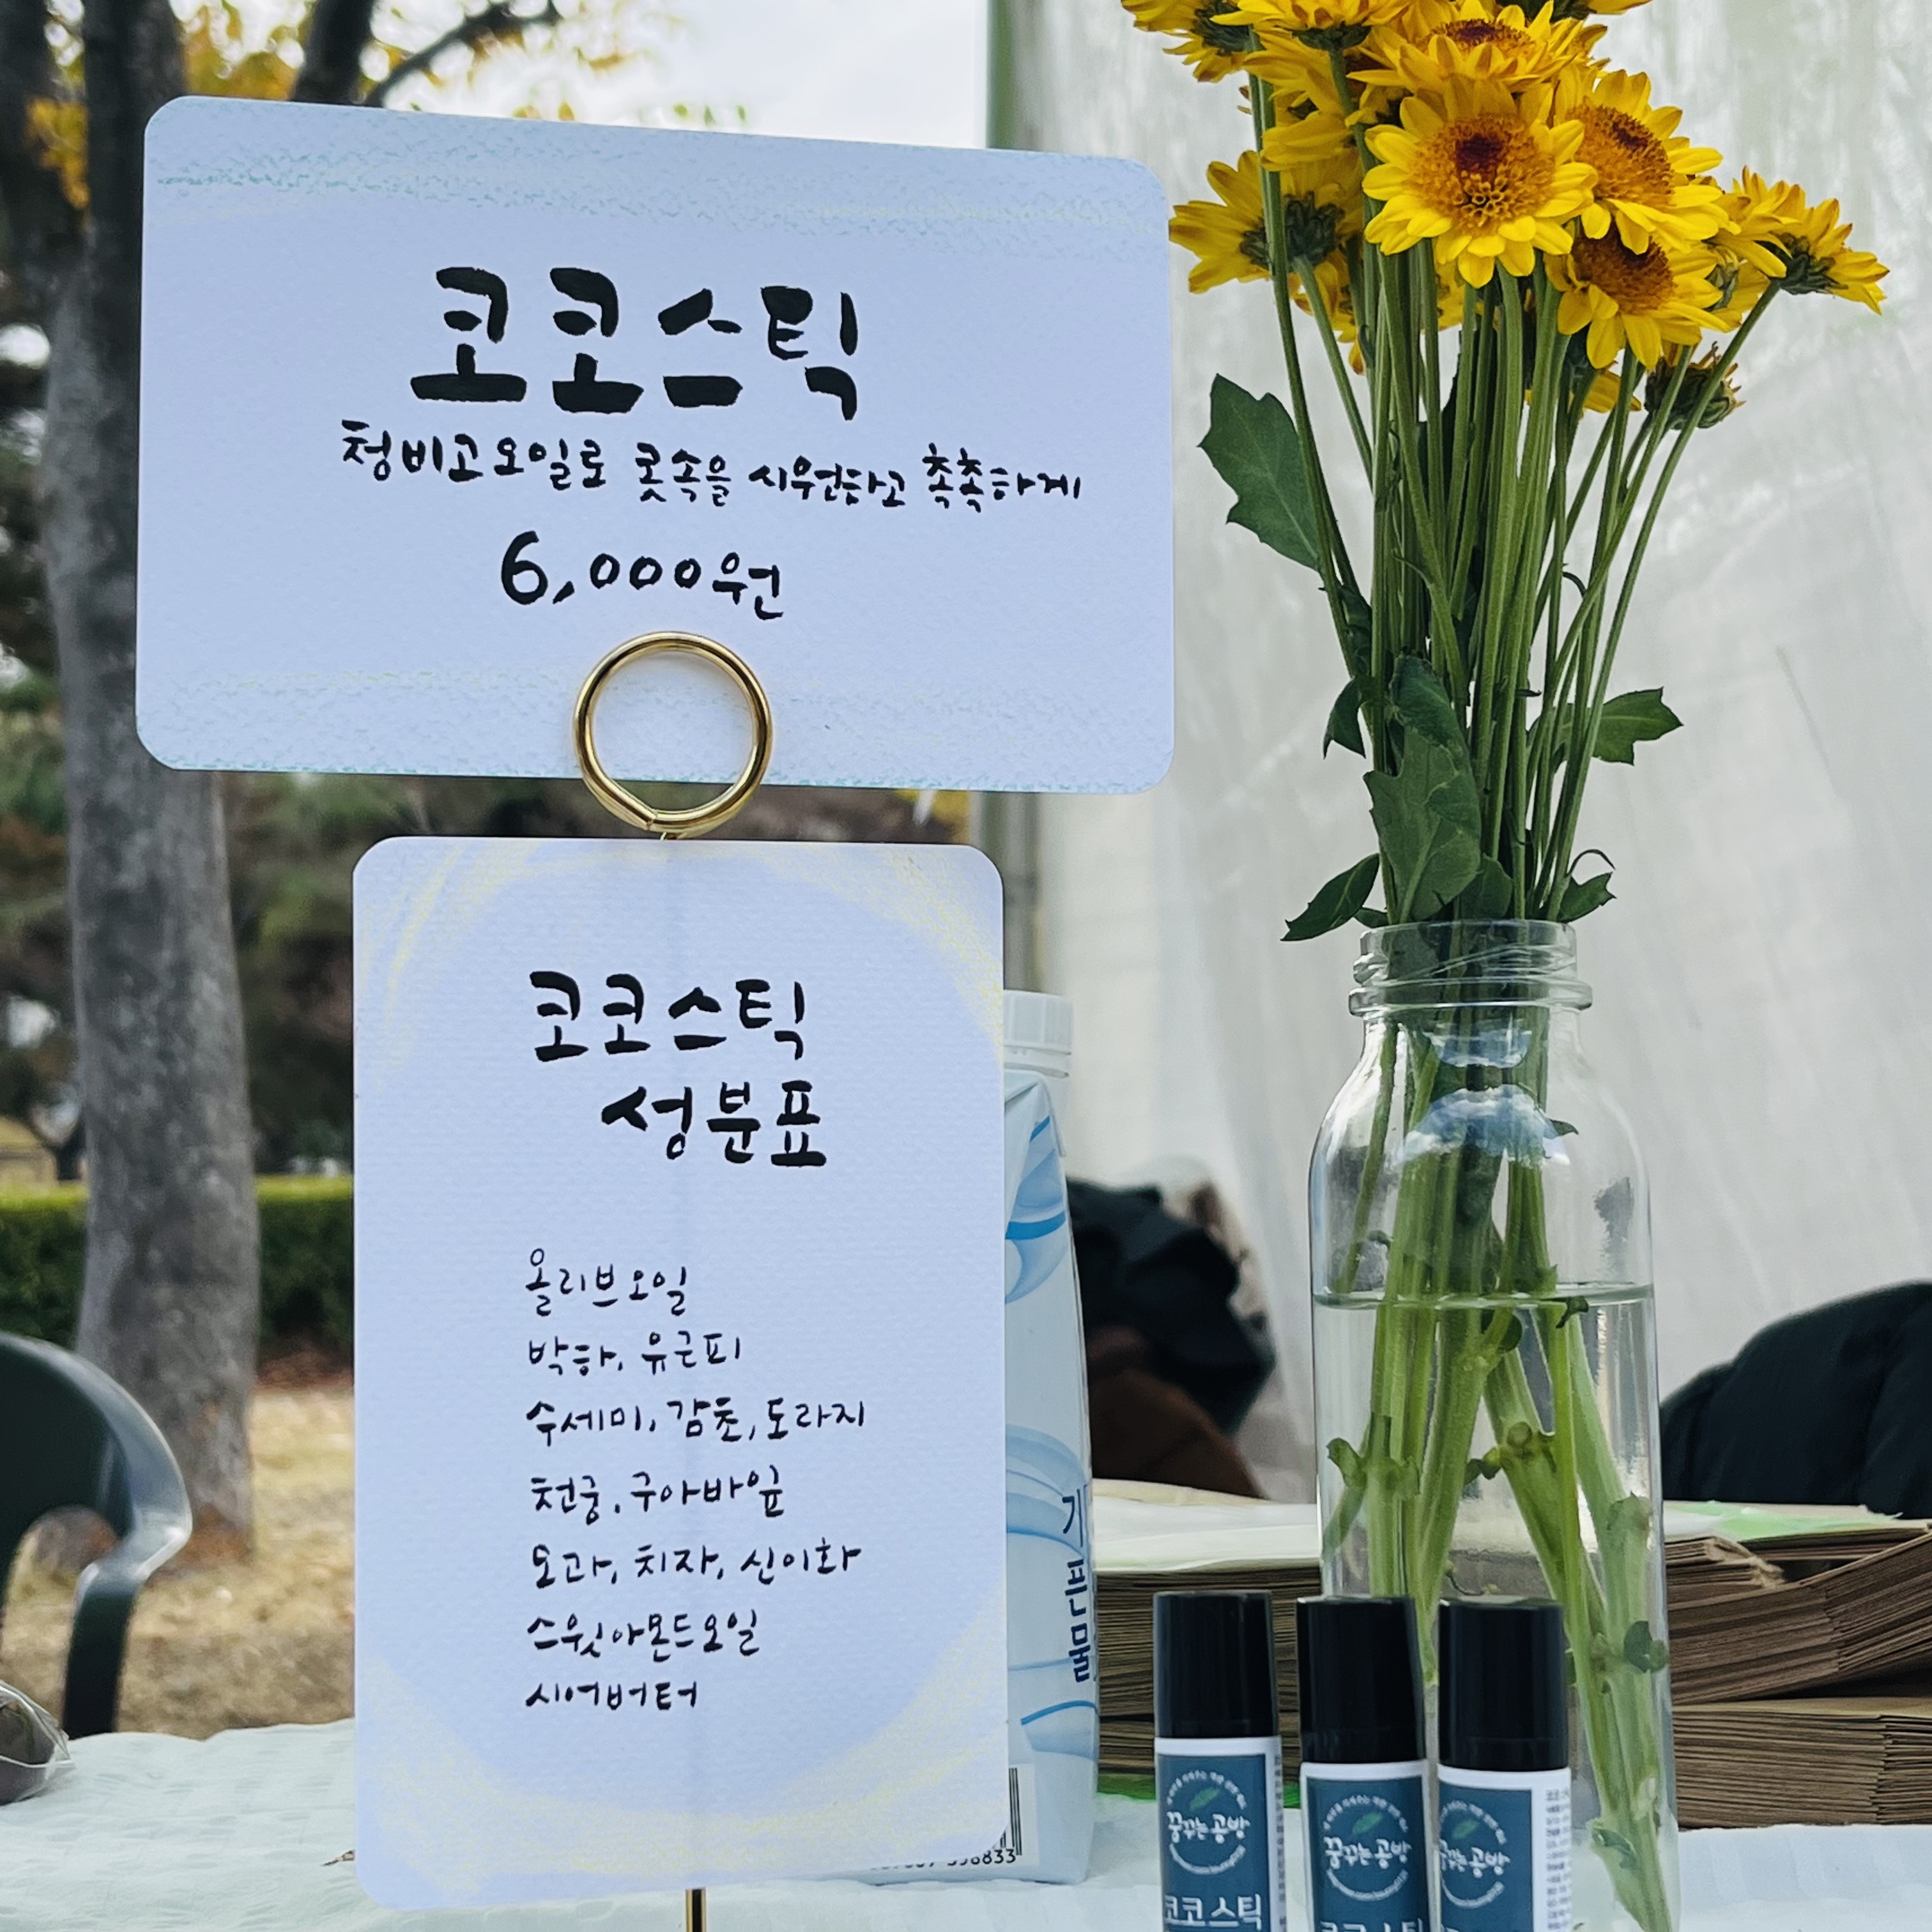 코코스틱
청비고오일로 콧속을 시원하고 촉촉하게
6,000원
코코스틱
성분표
올리브오일
박하, 유근피
수세미, 감초, 도라지
천궁, 구아바잎
모과, 치자, 신이화
스윗아몬드오일
시어버터
기픈물
꿈꾸는공방
코코스틱
꿈꾸는공방
코코스틱
꿈꾸는공방